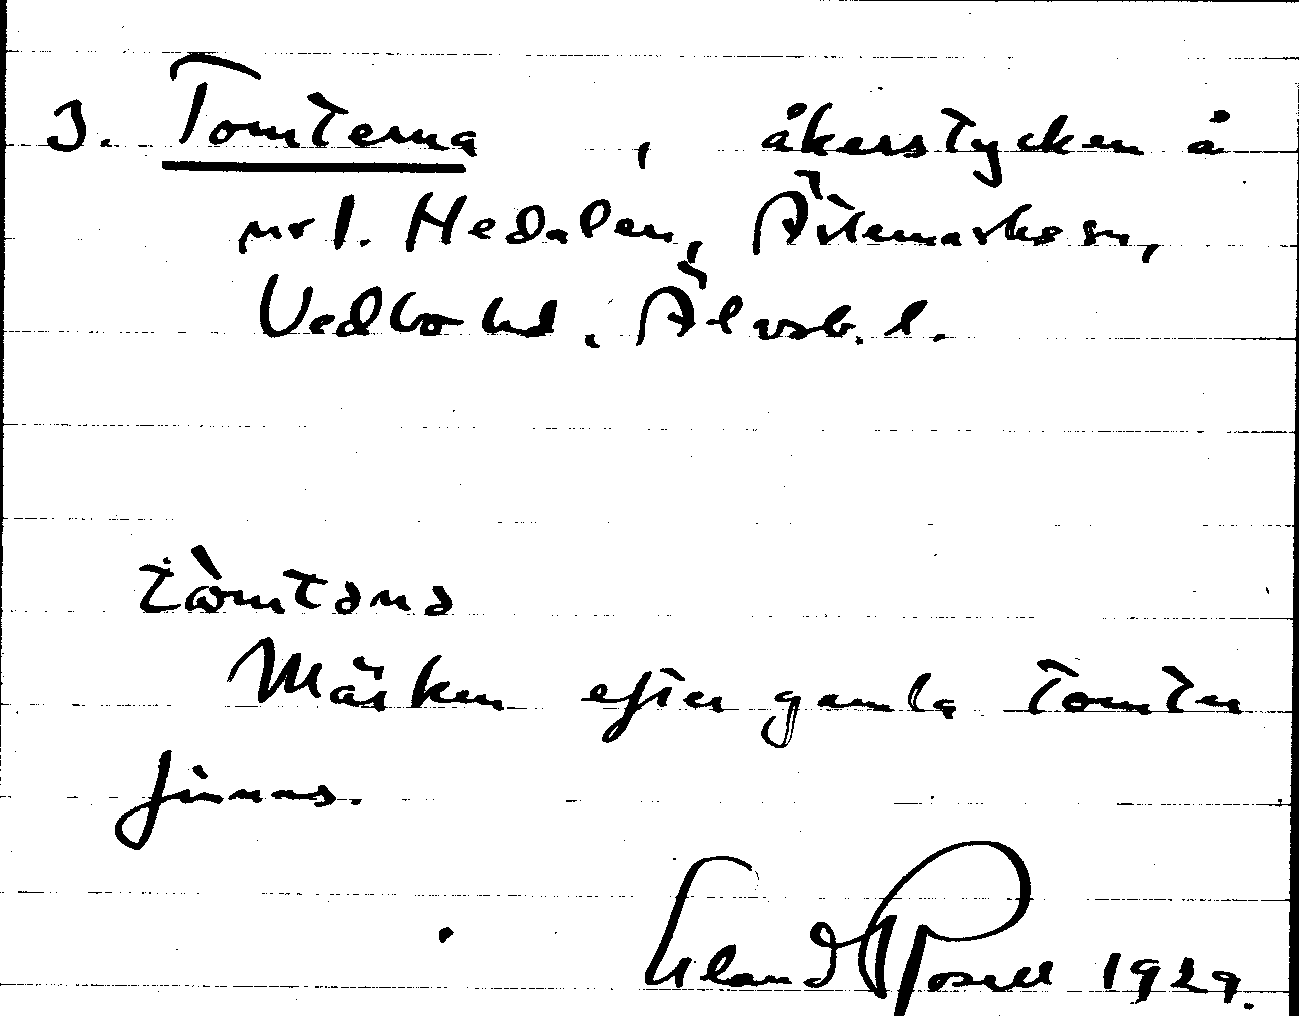 3. Tomterna , åkerstycken å
nr 1. Hedalen, Ärtemarks sn,
Vedbo hd. Älvsb. l.
tòmtənə
Märken efter gamla tomter
finns.
Erland Rosell 1929.